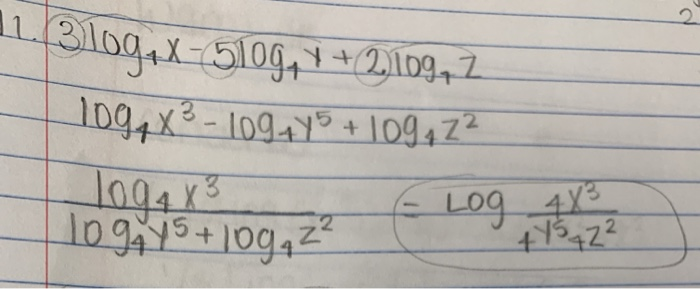 11. 3log₄x - 5log₄y + 2log₄z
log₄x³ - log₄y⁵ + log₄z²
log₄x³ / log₄y⁵ + log₄z² = Log 4x³ / 4y⁵4z²